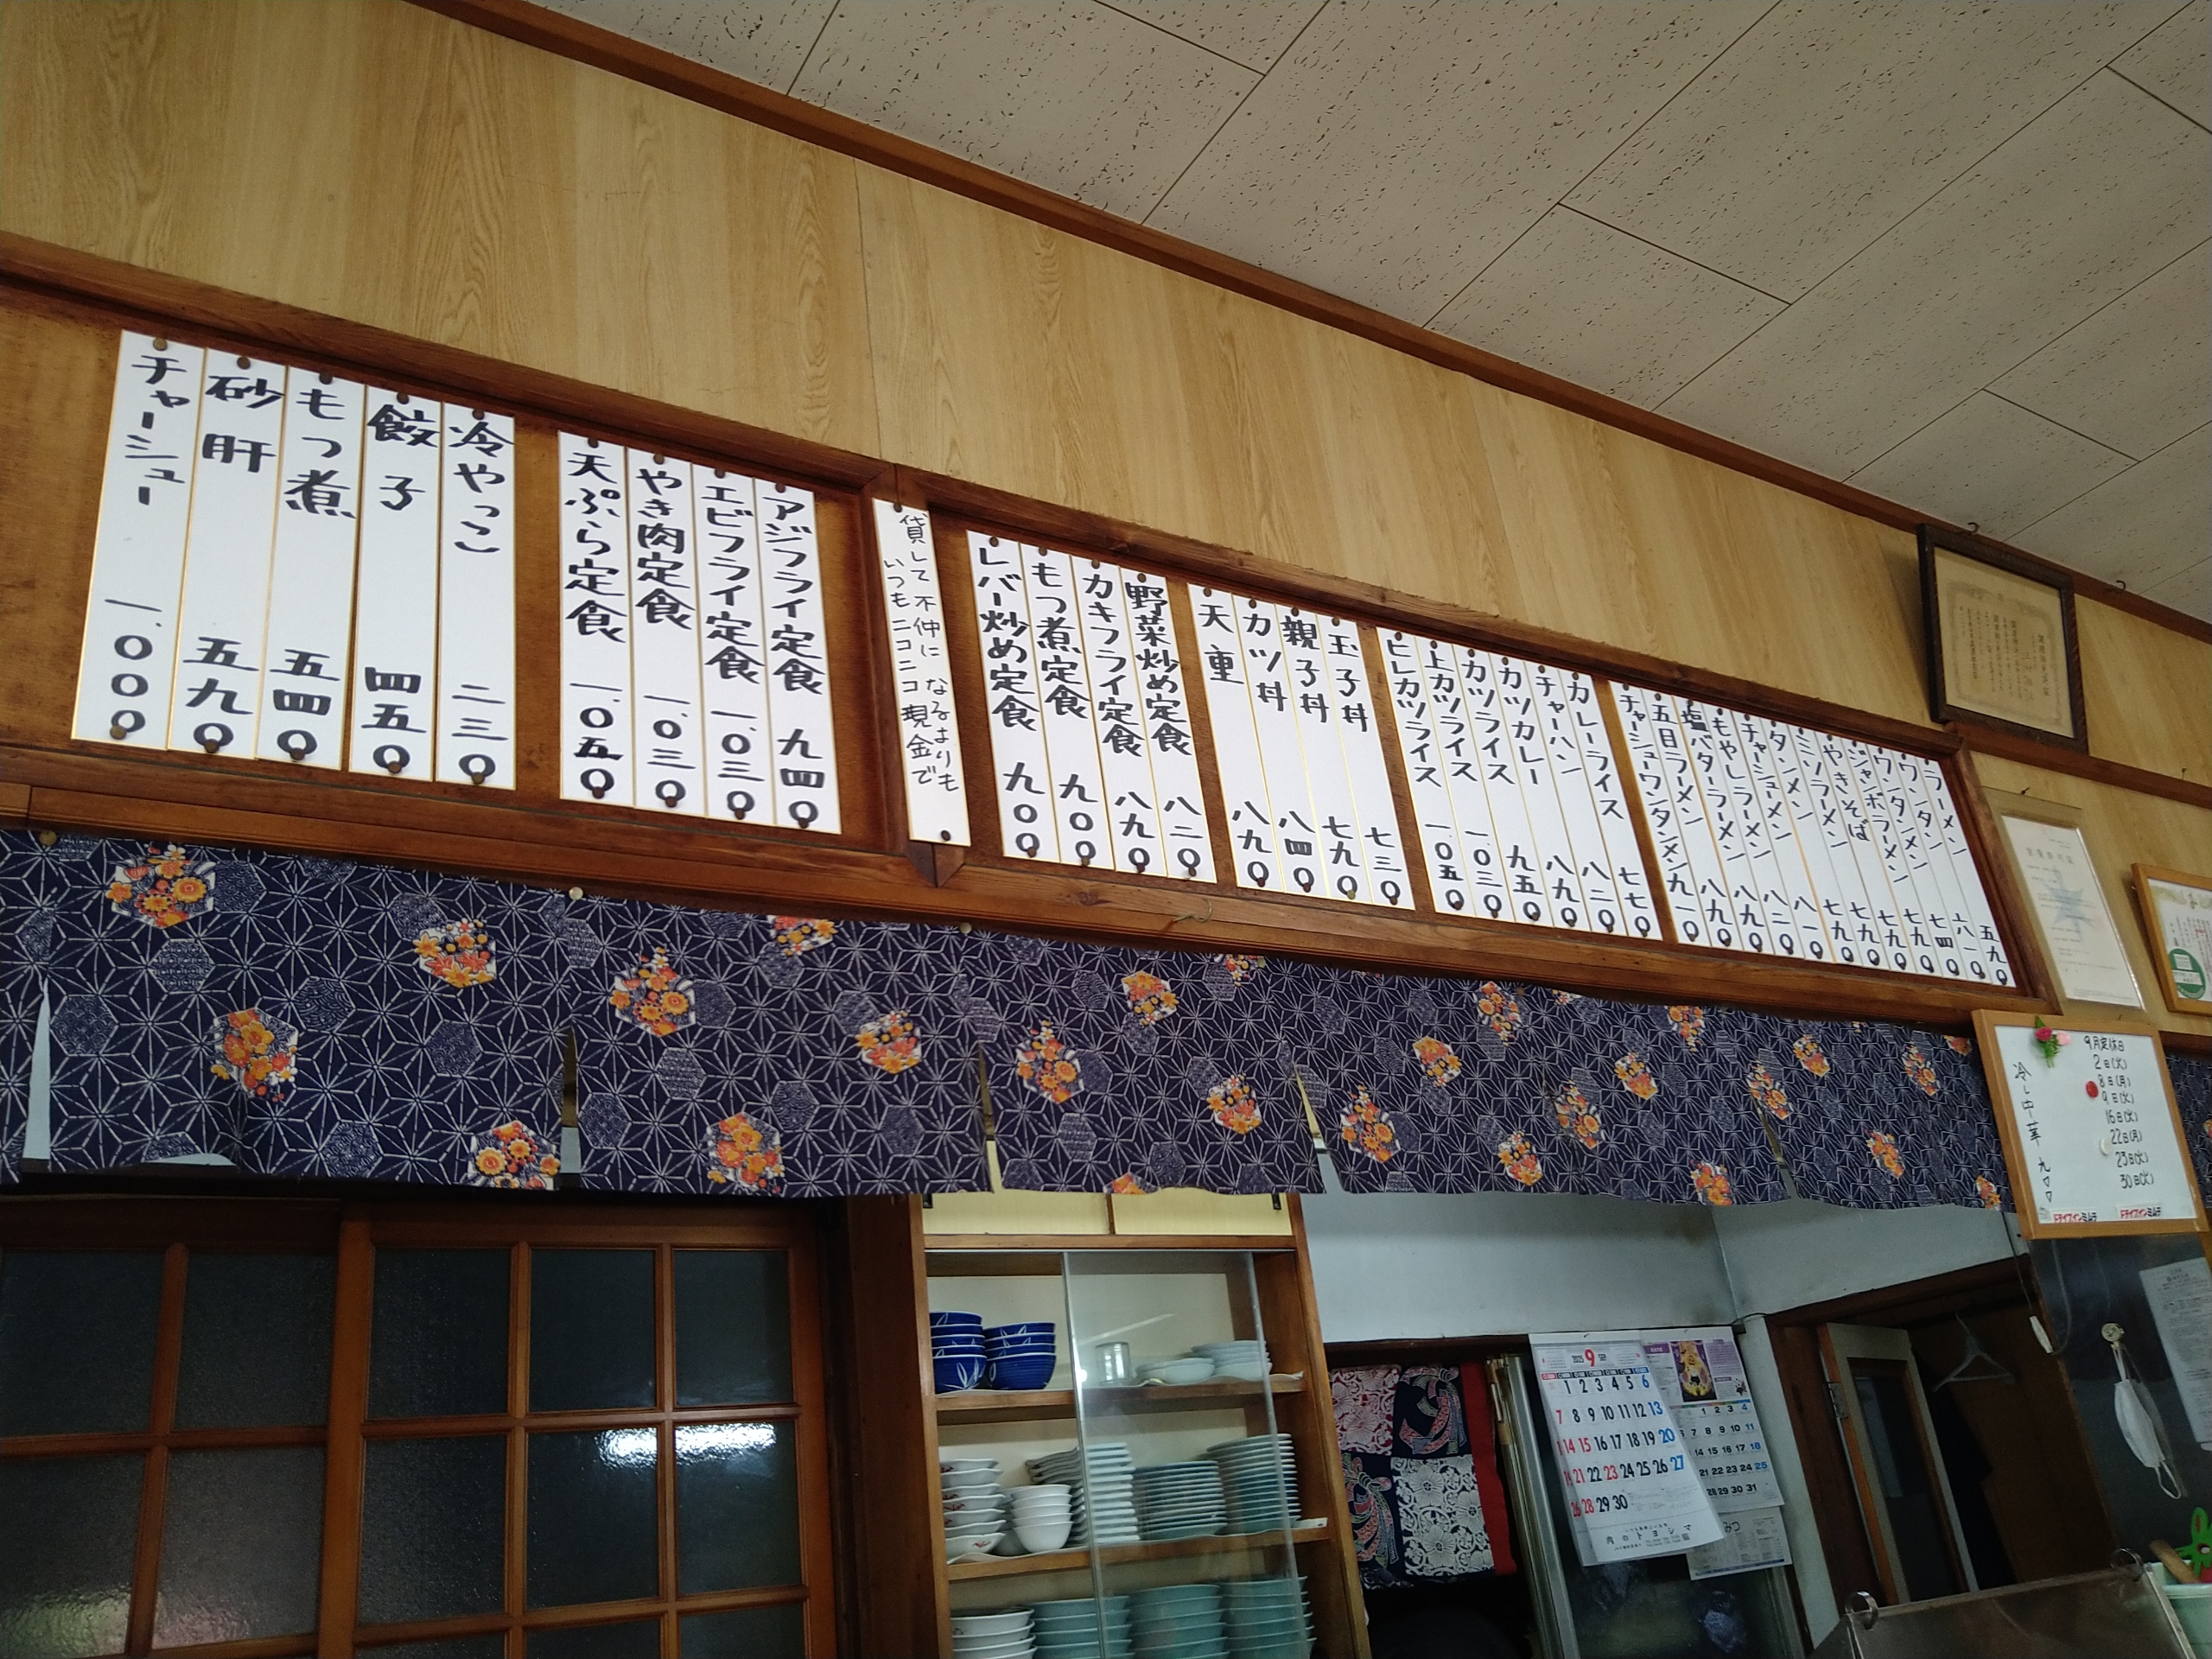 ラーメン 五九〇
ワンタン 六一〇
ワンタンメン 七四〇
ジャンボラーメン 七九〇
やきそば 七九〇
ミソラーメン 七九〇
タンメン 七九〇
チャーシューメン 八一〇
もやしラーメン 八二〇
塩バターラーメン 八九〇
五目ラーメン 八九〇
チャーシューワンタンメン 九一〇
カレーライス 七七〇
チャーハン 八二〇
カツカレー 八九〇
カツライス 九五〇
上カツライス 一、〇三〇
ヒレカツライス 一、〇五〇
玉子丼 七三〇
親子丼 七九〇
カツ丼 八四〇
天重 八九〇
野菜炒め定食 八二〇
カキフライ定食 八九〇
もつ煮定食 九〇〇
レバー炒め定食 九〇〇
貸して不仲になるよりも
いつもニコニコ現金で
アジフライ定食 九四〇
エビフライ定食 一、〇三〇
やき肉定食 一、〇三〇
天ぷら定食 一、〇五〇
冷やっこ 二三〇
餃子 四五〇
もつ煮 五四〇
砂肝 五九〇
チャーシュー 一、〇〇〇
9月定休日
2日(火)
8日(月)
9日(火)
16日(火)
22日(月)
23日(火)
30日(火)
冷し中華 九〇〇
ドライブインミムラ ドライブインミムラ
2025 9 SEP
1 2 3 4 5 6
7 8 9 10 11 12 13
14 15 16 17 18 19 20
21 22 23 24 25 26 27
28 29 30
肉のトヨシマ
1 2 3 4
7 8 9 10 11
14 15 16 17 18
21 22 23 24 25
28 29 30 31